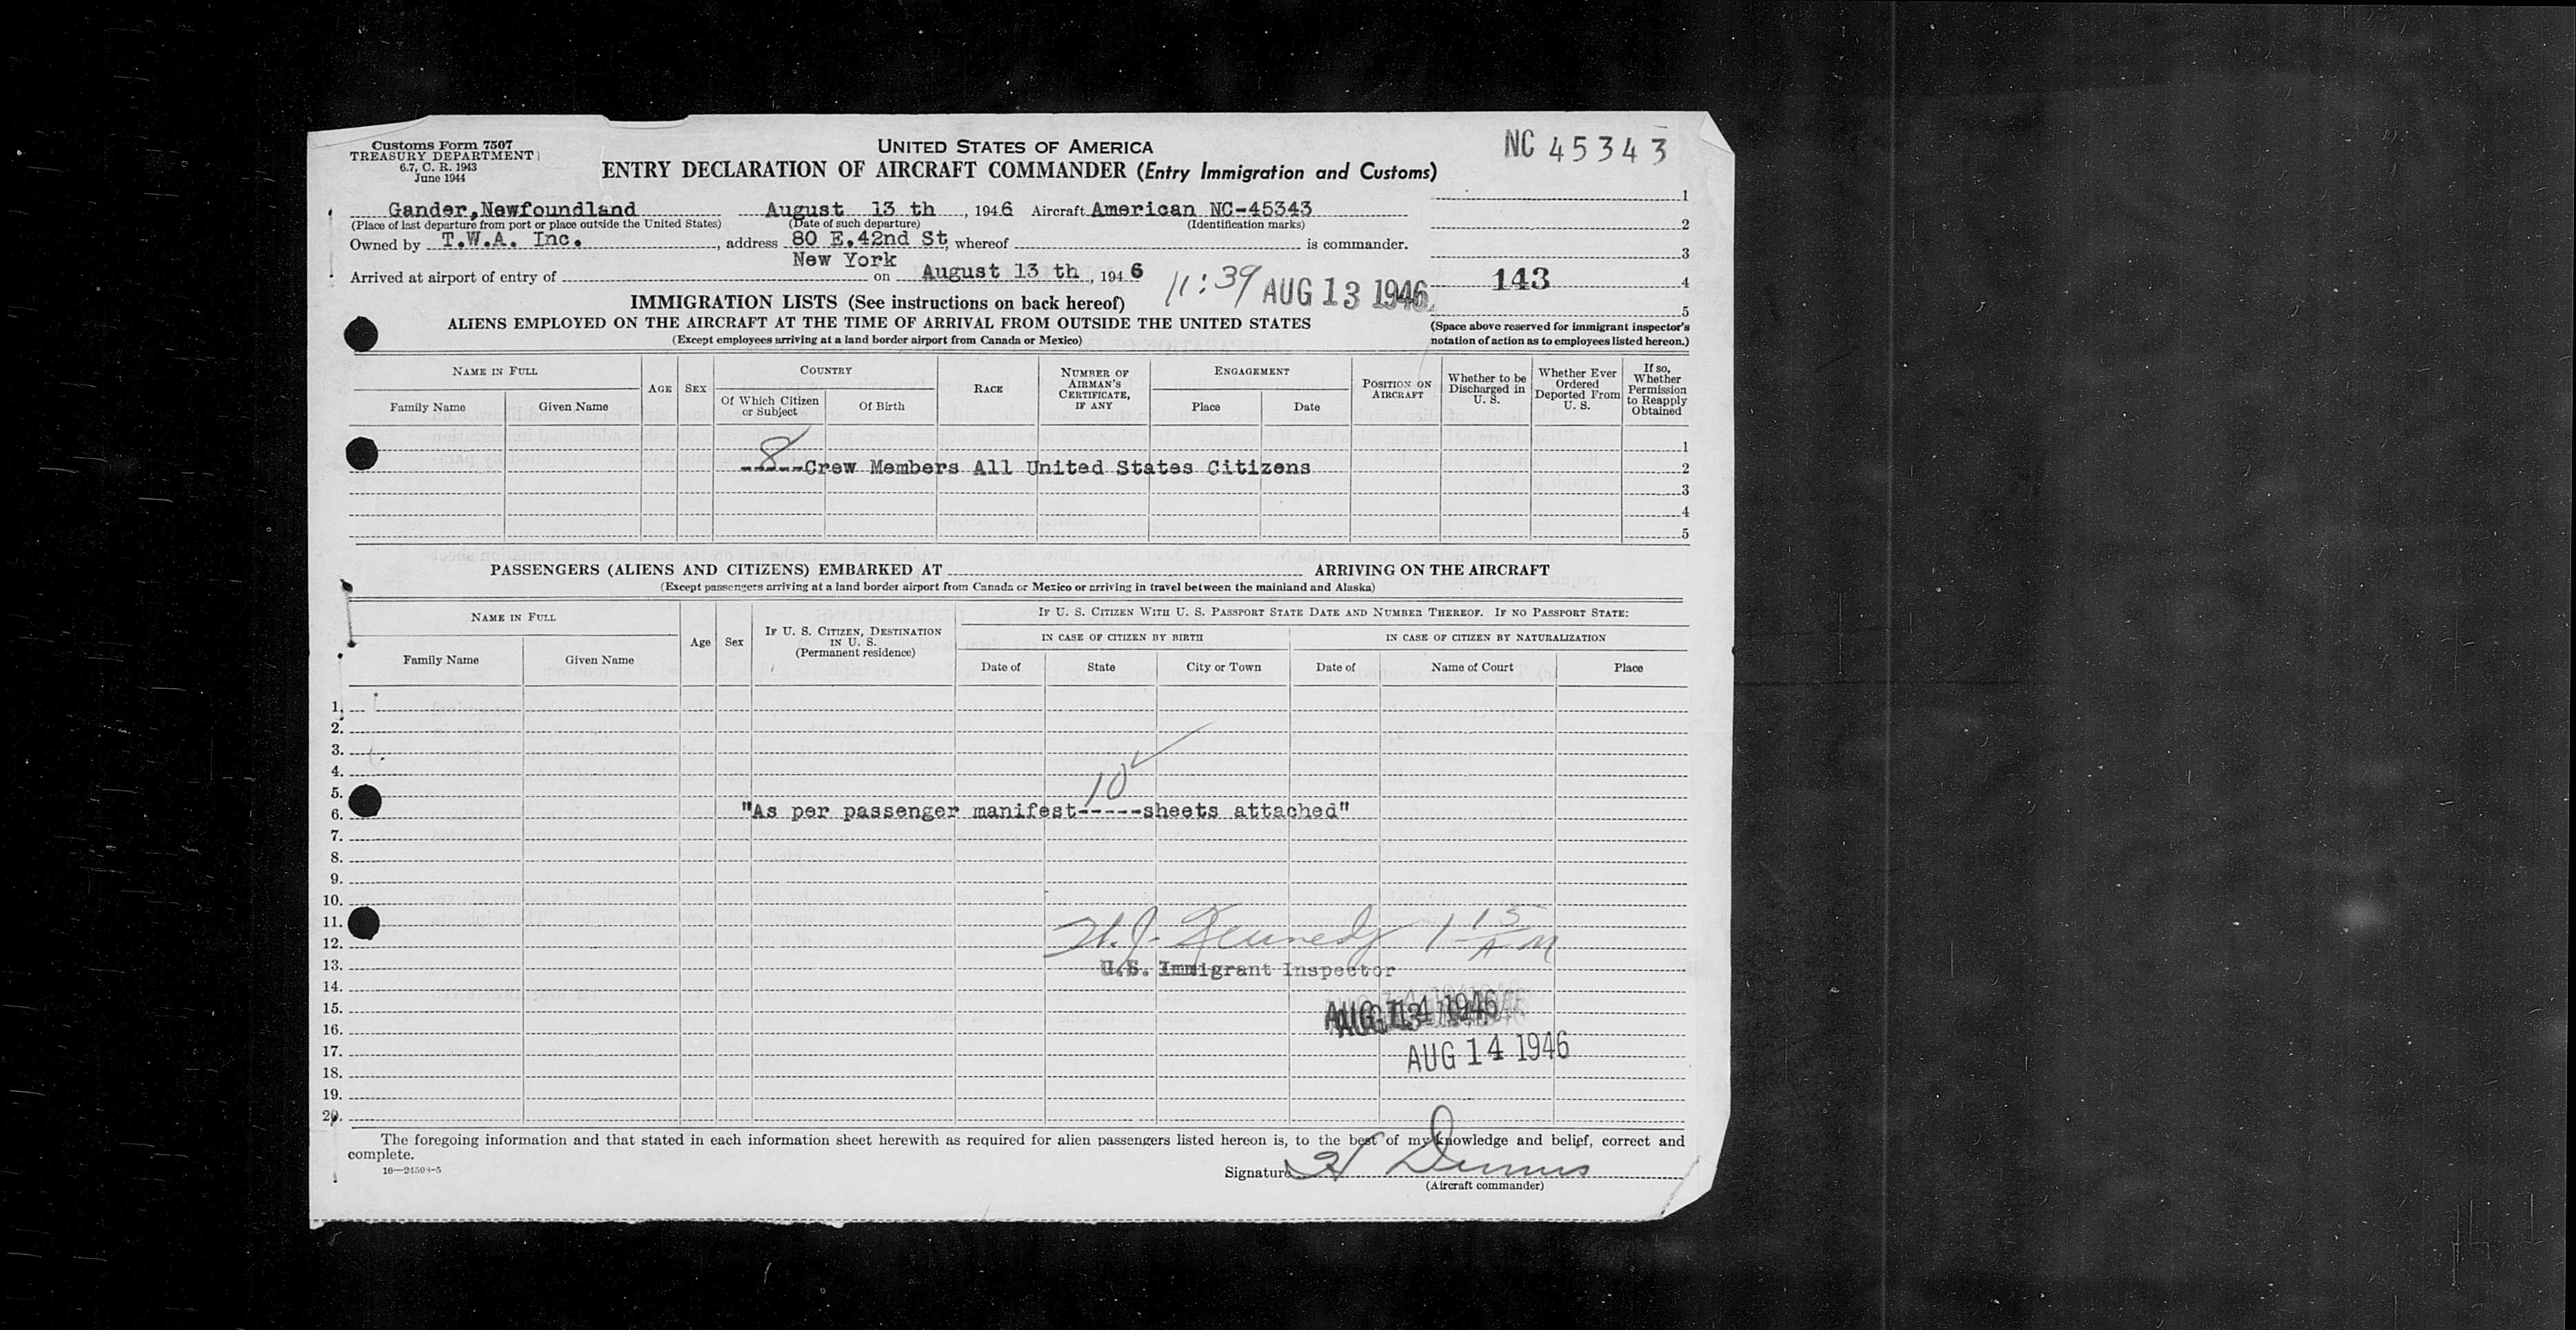 Customs Form 7507
TREASURY DEPARTMENT
6.7, C. R. 1943
June 1944
UNITED STATES OF AMERICA
ENTRY DECLARATION OF AIRCRAFT COMMANDER (Entry Immigration and Customs)
NC 45343
Gander,Newfoundland August 13 th, 1946 Aircraft American NC-45343
(Place of last departure from port or place outside the United States) (Date of such departure) (Identification marks)
Owned by T.W.A. Inc., address 80 E.42nd St, whereof is commander.
New York
Arrived at airport of entry of on August 13 th, 1946
11:39 AUG 13 1946
1
2
3
143 4
5
(Space above reserved for immigrant inspector's notation of action as to employees listed hereon.)
IMMIGRATION LISTS (See instructions on back hereof)
ALIENS EMPLOYED ON THE AIRCRAFT AT THE TIME OF ARRIVAL FROM OUTSIDE THE UNITED STATES
(Except employees arriving at a land border airport from Canada or Mexico)
NAME IN FULL
Family Name Given Name
AGE SEX
COUNTRY
Of Which Citizen or Subject Of Birth
RACE
NUMBER OF AIRMAN'S CERTIFICATE, IF ANY
ENGAGEMENT
Place Date
POSITION ON AIRCRAFT
Whether to be Discharged in U. S.
Whether Ever Ordered Deported From U. S.
If so, Whether Permission to Reapply Obtained
1
8
-----Crew Members All United States Citizens 2
3
4
5
PASSENGERS (ALIENS AND CITIZENS) EMBARKED AT ARRIVING ON THE AIRCRAFT
(Except passengers arriving at a land border airport from Canada or Mexico or arriving in travel between the mainland and Alaska)
NAME IN FULL
Family Name Given Name
Age Sex
IF U. S. CITIZEN, DESTINATION IN U. S. (Permanent residence)
IF U. S. CITIZEN WITH U. S. PASSPORT STATE DATE AND NUMBER THEREOF. IF NO PASSPORT STATE:
IN CASE OF CITIZEN BY BIRTH IN CASE OF CITIZEN BY NATURALIZATION
Date of State City or Town Date of Name of Court Place
1.
2.
3.
4.
10
5.
6. "As per passenger manifest-----sheets attached"
7.
8.
9.
10.
11.
12. H.J. Kennedy 1 15 AM
13. U.S. Immigrant Inspector
14.
15. AUG 14 1946
AUG 13 1946
16.
17. AUG 14 1946
18.
19.
20.
The foregoing information and that stated in each information sheet herewith as required for alien passengers listed hereon is, to the best of my knowledge and belief, correct and
complete.
16—24598-5
Signature H Dennis
(Aircraft commander)